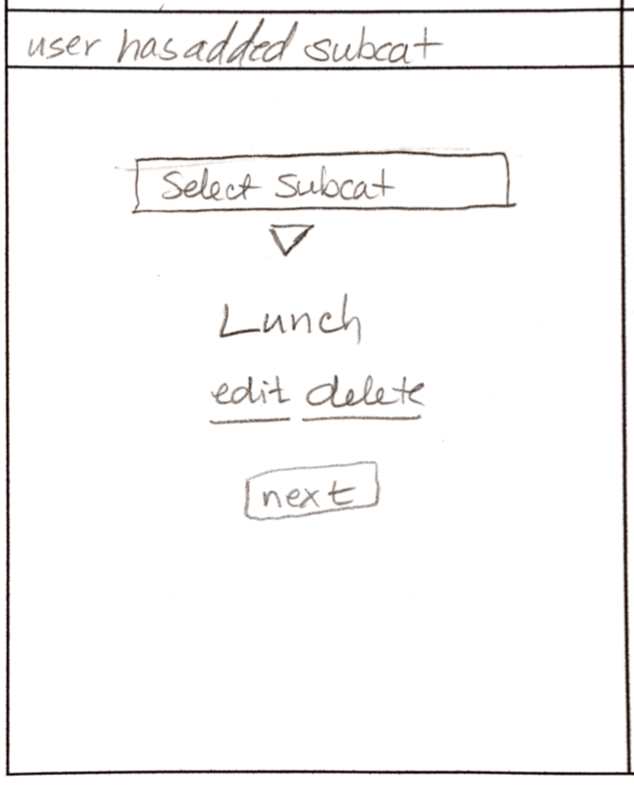 user has added subcat
Select Subcat
Lunch
edit delete
next